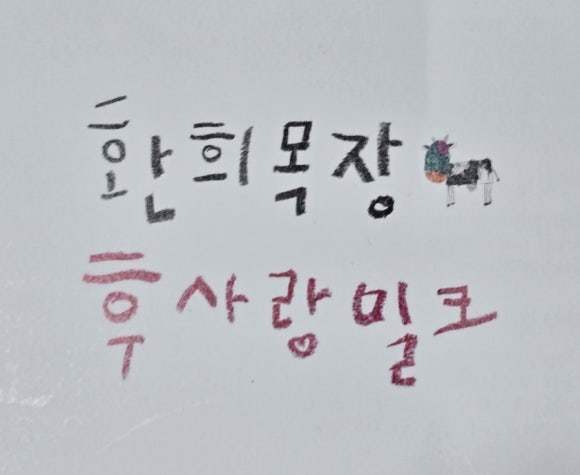 환희목장
후사랑밀크